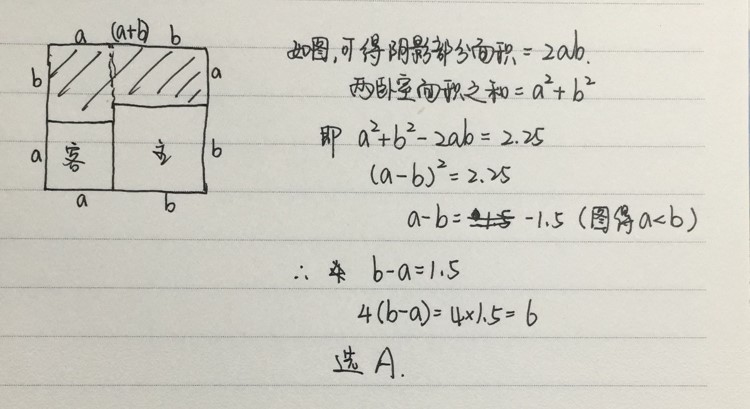 a (a+b) b
b
a
a
客
主
b
a
b
如图,可得阴影部分面积=2ab.
两卧室面积之和=a²+b²
即 a²+b²-2ab=2.25
(a-b)²=2.25
a-b= -1.5 (图得a<b)
∴ b-a=1.5
4(b-a)=4×1.5=6
选 A.